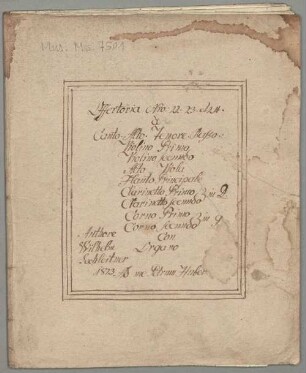 Mus. Mss. 7501
Offertoria Nro 22. 23. 
à
Canto, Alto, Tenore, Basso.
Violino Primo
Violino Secundo
Alto Viola
Flauto Principale
Clarinetto Primo
Clarinetto Secundo
Corno Primo
Corno Secundo
Con
Organo
Authore
Wilhelm